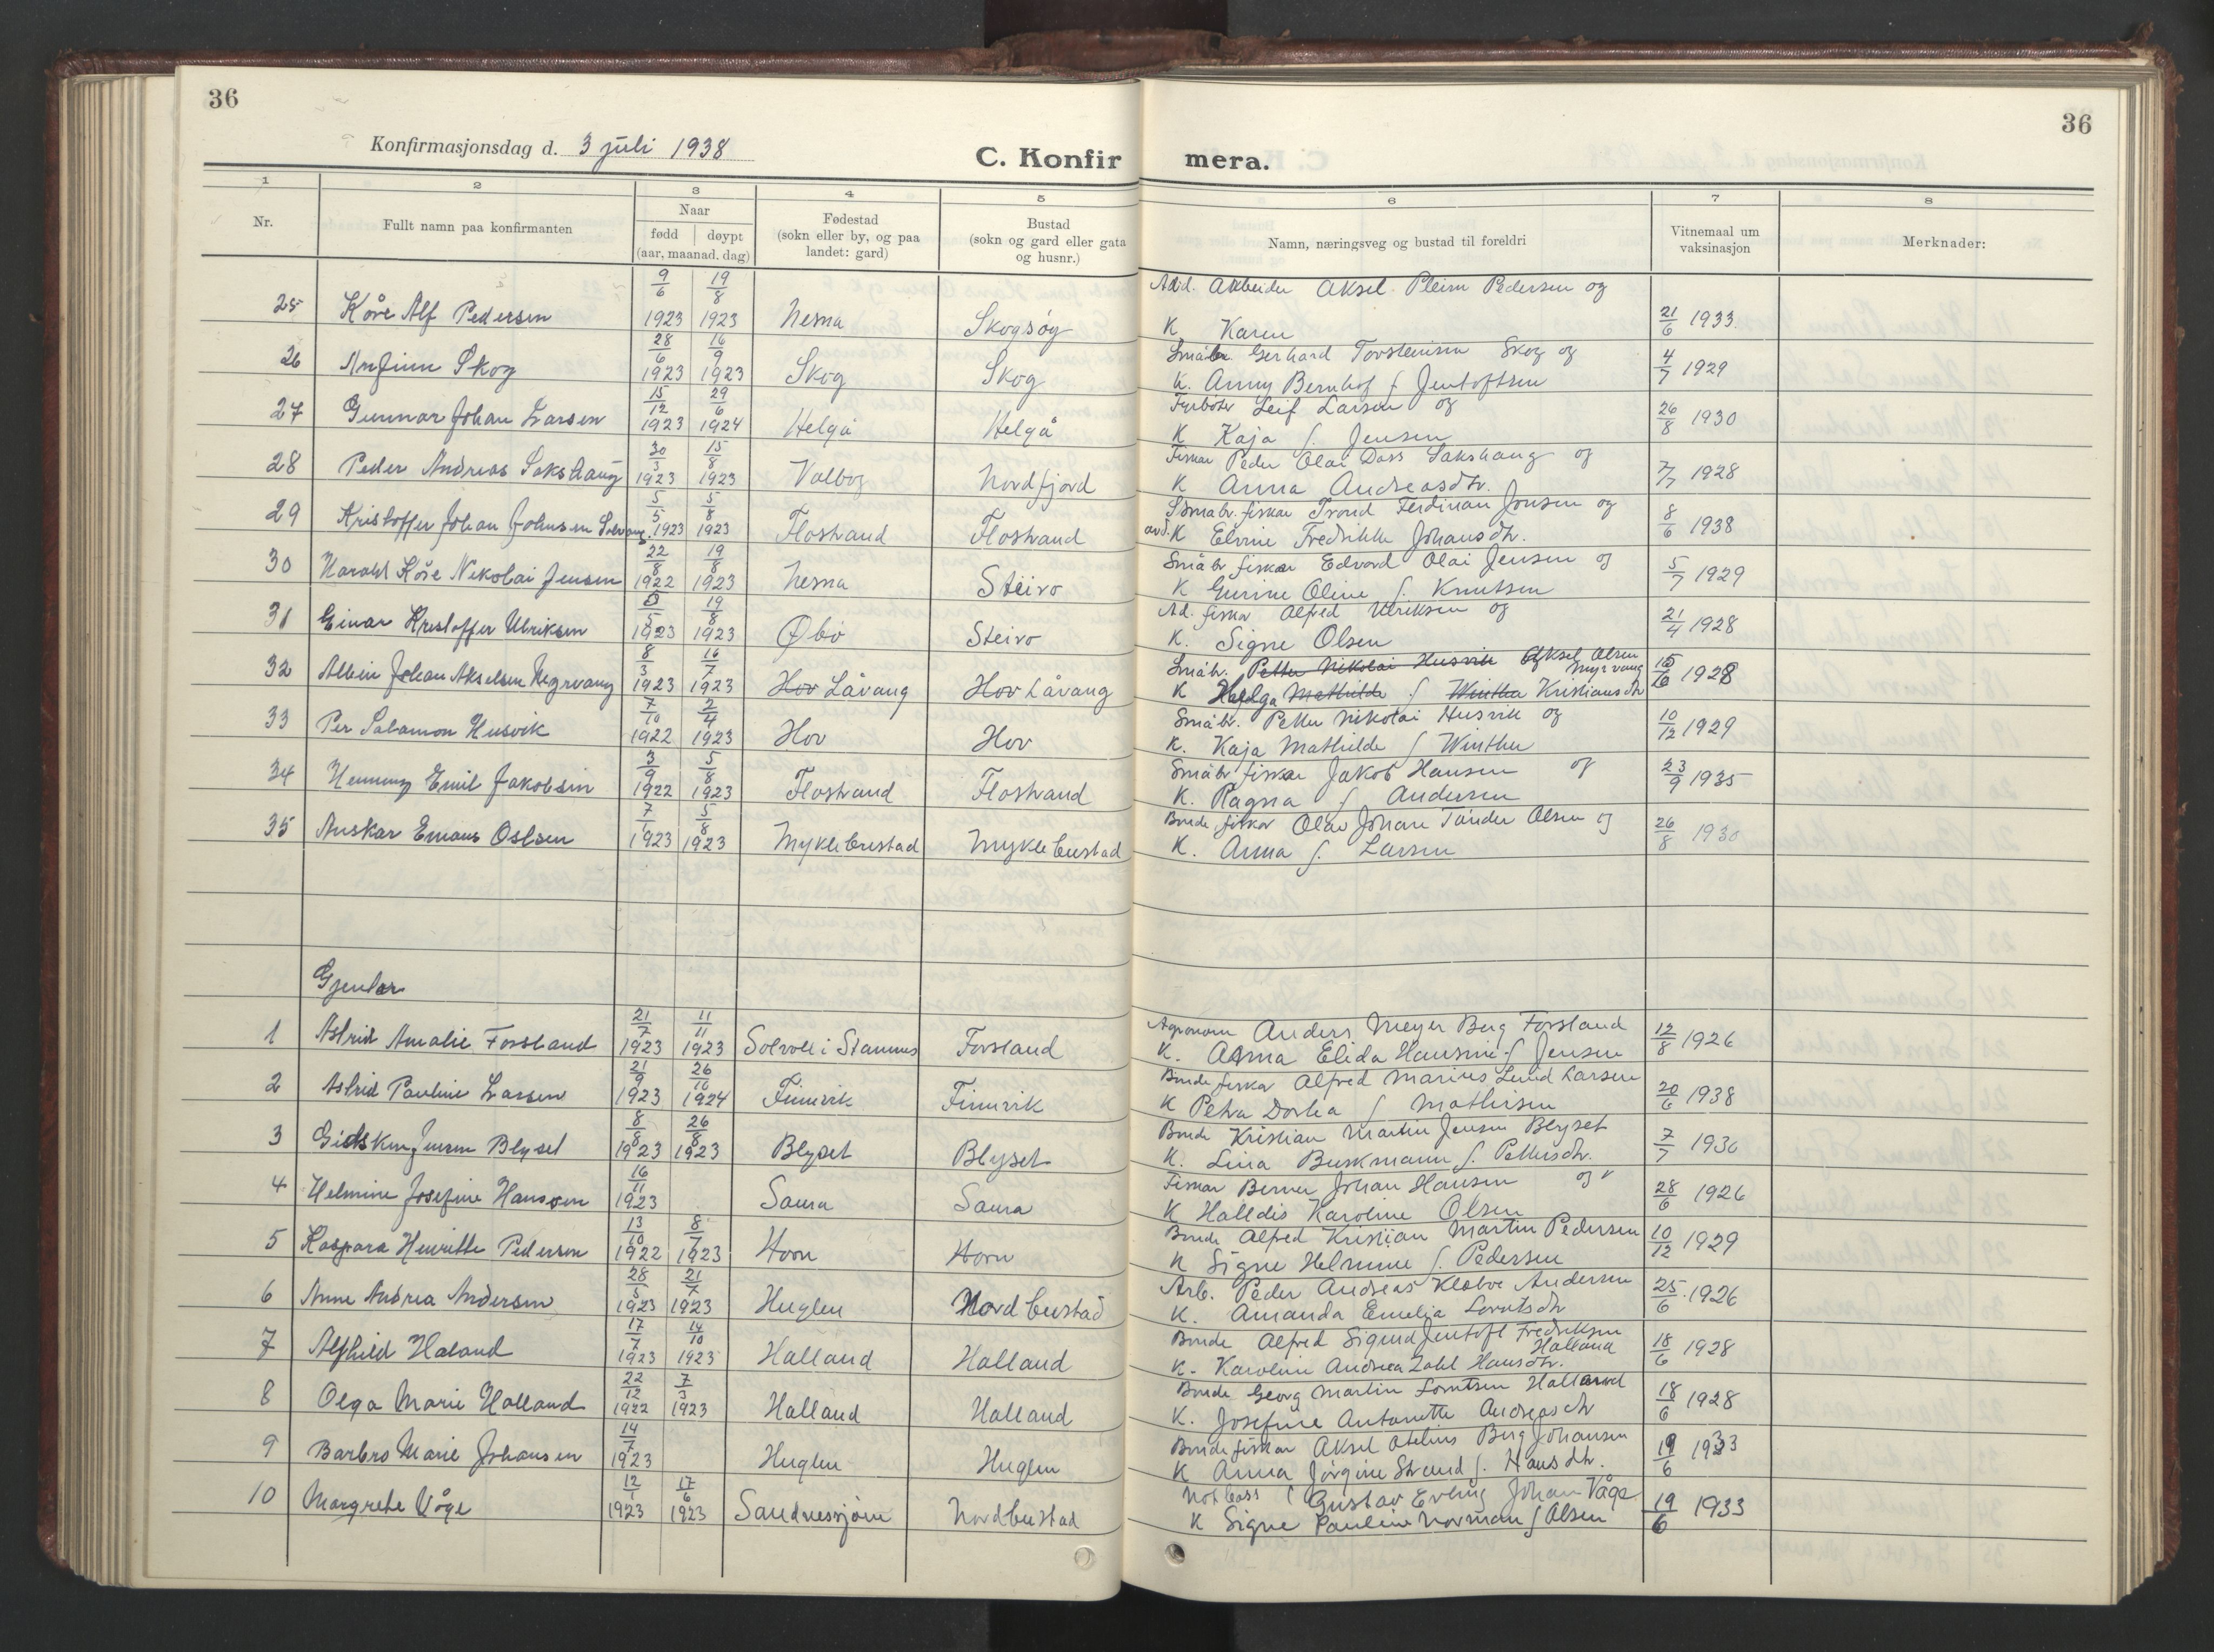 36
36
Konfirmasjonsdag d. 3 juli 1938
C. Konfir mera.
1 2 3 4 5 6 7 8
Nr.
Fullt namn paa konfirmanten
Naar
fødd | døypt
(aar, maanad. dag)
Fødestad
(sokn eller by, og paa
landet: gard)
Bustad
(sokn og gard eller gata
og husnr.)
Namn, næringsveg og bustad til foreldri
Vitnemaal um
vaksinasjon
Merknader:
9/6 19/8 Arbeider Aksel Pedersen og
25 Kåre Alf Pedersen 1923 1923 Nesna Skogsøy K Karen 21/6 1933
28/6 16/9 Småbr. Gerhard Torsteinsen Skog og
26 Arnfinn Skog 1923 1923 Skog Skog K. Anny Bernhof f Jentoftsen 4/7 1929
15/12 29/6 Fyrbøter Leif Larsen og
27 Gunnar Johan Larsen 1923 1924 Helgå Helgå K Kaja f. Jensen 26/8 1930
30/3 15/8 Fiskar Peder Olai Dass Sakshaug og
28 Peder Andreas Sakshaug 1923 1923 Valberg Nordfjord K Anna Andreasdtr. 7/7 1928
5/5 5/8 Småbr. fiskar Trond Ferdinan Jonsen og
29 Kristoffer Johan Johnsen 1923 1923 Flostrand Flostrand K Elvine Fredrikke Johansdtr. 8/6 1938
22/8 19/8 Småbr fiskar Edvard Olai Jensen og
30 Harald Kåre Nikolai Jensen 1922 1923 Nesna Steiro K Gurine Oline f. Knutsen 5/7 1929
19/8 Ad. fiskar Alfred Ulriksen og
31 Einar Kristoffer Ulriksen 1923 1923 Øbø Steiro K. Signe Olsen 21/4 1928
8/3 16/7 Småbr. Petter Nikolai Husvik Aksel Olsen Myrvang
32 Albin Johan Akselsen 1923 1923 Hov Låvang Hov Låvang K Helga Mathilde f Winther Kristiansdtr 1928
7/10 2/4 Småbr. Petter Nikolai Husvik og
33 Per Salamon Husvik 1922 1923 Hov Hov K. Kaja Mathilde f Winther 10/12 1929
3/9 5/8 Småbr fiskar Jakob Hansen og
34 Henning Emil Jakobsen 1922 1923 Flostrand Flostrand K. Ragna f Andersen 23/9 1935
7/1 5/8 Bonde fiskar Olav Johan Tander Olsen og
35 Anskar Emaus Oslsen 1923 1923 Myklebustad Myklebustad K. Anna f. Larsen 26/8 1930
Gjentor
21/7 11/11 Agronom Anders Meyer Berg Forsland
1 Astrid Amalie Forsland 1923 1923 Solvoll i Stamnes Forsland K. Anna Elida Hansine f Jensen 12/8 1926
21/9 26/10 Bonde fiskar Alfred Marius Lund Larsen
2 Astrid Pauline Larsen 1923 1924 Finnvik Finnvik K Petra Dortea f Mathisen 20/6 1938
8/8 26/8 Bonde Kristian Martin Jensen Blyset
3 Gidsken Jensen Blyset 1923 1923 Blyset Blyset K. Lina Buskmann f. Pettersdtr. 7/7 1930
16/11 Fiskar Berner Johan Hansen og
4 Helmine Josefine Hanssen 1923 Saura Saura K Halldis Karoline Olsen 28/6 1926
13/10 8/7 Bonde Alfred Kristian Martin Pedersen
5 Kaspara Henritte Pedersen 1922 1923 Horn Horn K Signe Helmine f. Pedersen 10/12 1929
28/5 21/7 Arb. Peder Andreas Andersen
6 Anne Andrea Andersen 1923 1923 Huglen Nordbustad K. Amanda Emelia Lorntsdtr 25/6 1926
17/7 14/10 Bonde Alfred Sigurd Jentoft Fredriksen Halland
7 Alfhild Haland 1923 1923 Halland Halland K. Karoline Andrea Zahl Hansdtr. 18/6 1928
22/12 7/3 Bonde Georg Martin Lorntsen Halland
8 Olga Marie Halland 1922 1923 Halland Halland K. Josefine Antonette Andreasdtr 18/6 1928
14/7 Bonde fiskar Aksel Otelius Berg Johansen
9 Barbro Marie Johansen 1923 Huglen Huglen K Anna Jörgine Strand f. Hansdtr. 19/6 1933
12/1 17/6 Notbass Gustav Johan Våge
10 Margrethe Våge 1923 1923 Sandnessjøen Nordbustad K Signe Pauline Norman f Olsen 19/6 1933